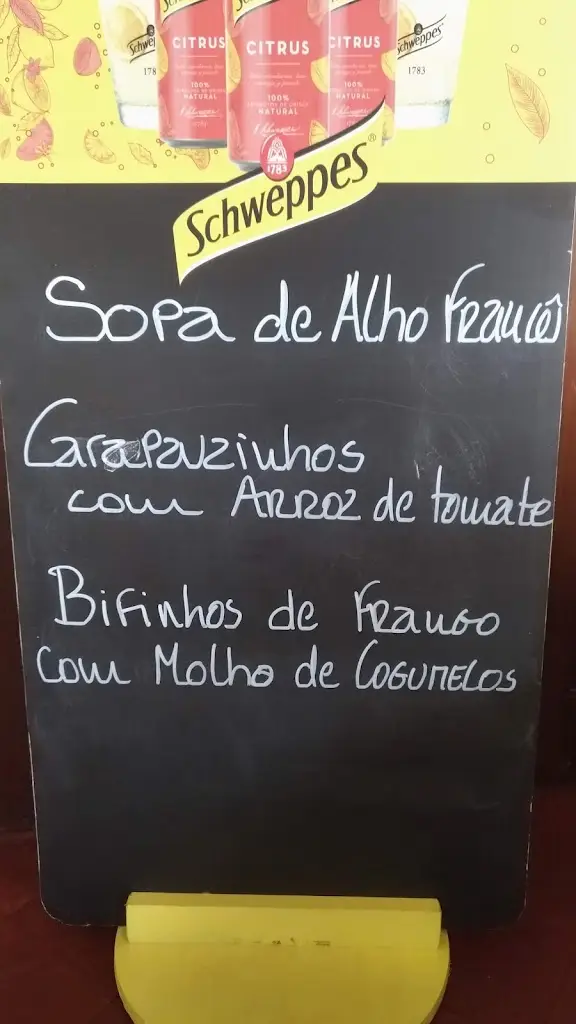 Schweppes
1783
CITRUS
CITRUS
CITRUS
100%
NATURAL
100%
NATURAL
100%
NATURAL
Schweppes
1783
1783
Schweppes®
Sopa de Alho Francês
Carapauzinhos
com Arroz de tomate
Bifinhos de Frango
com Molho de Cogumelos